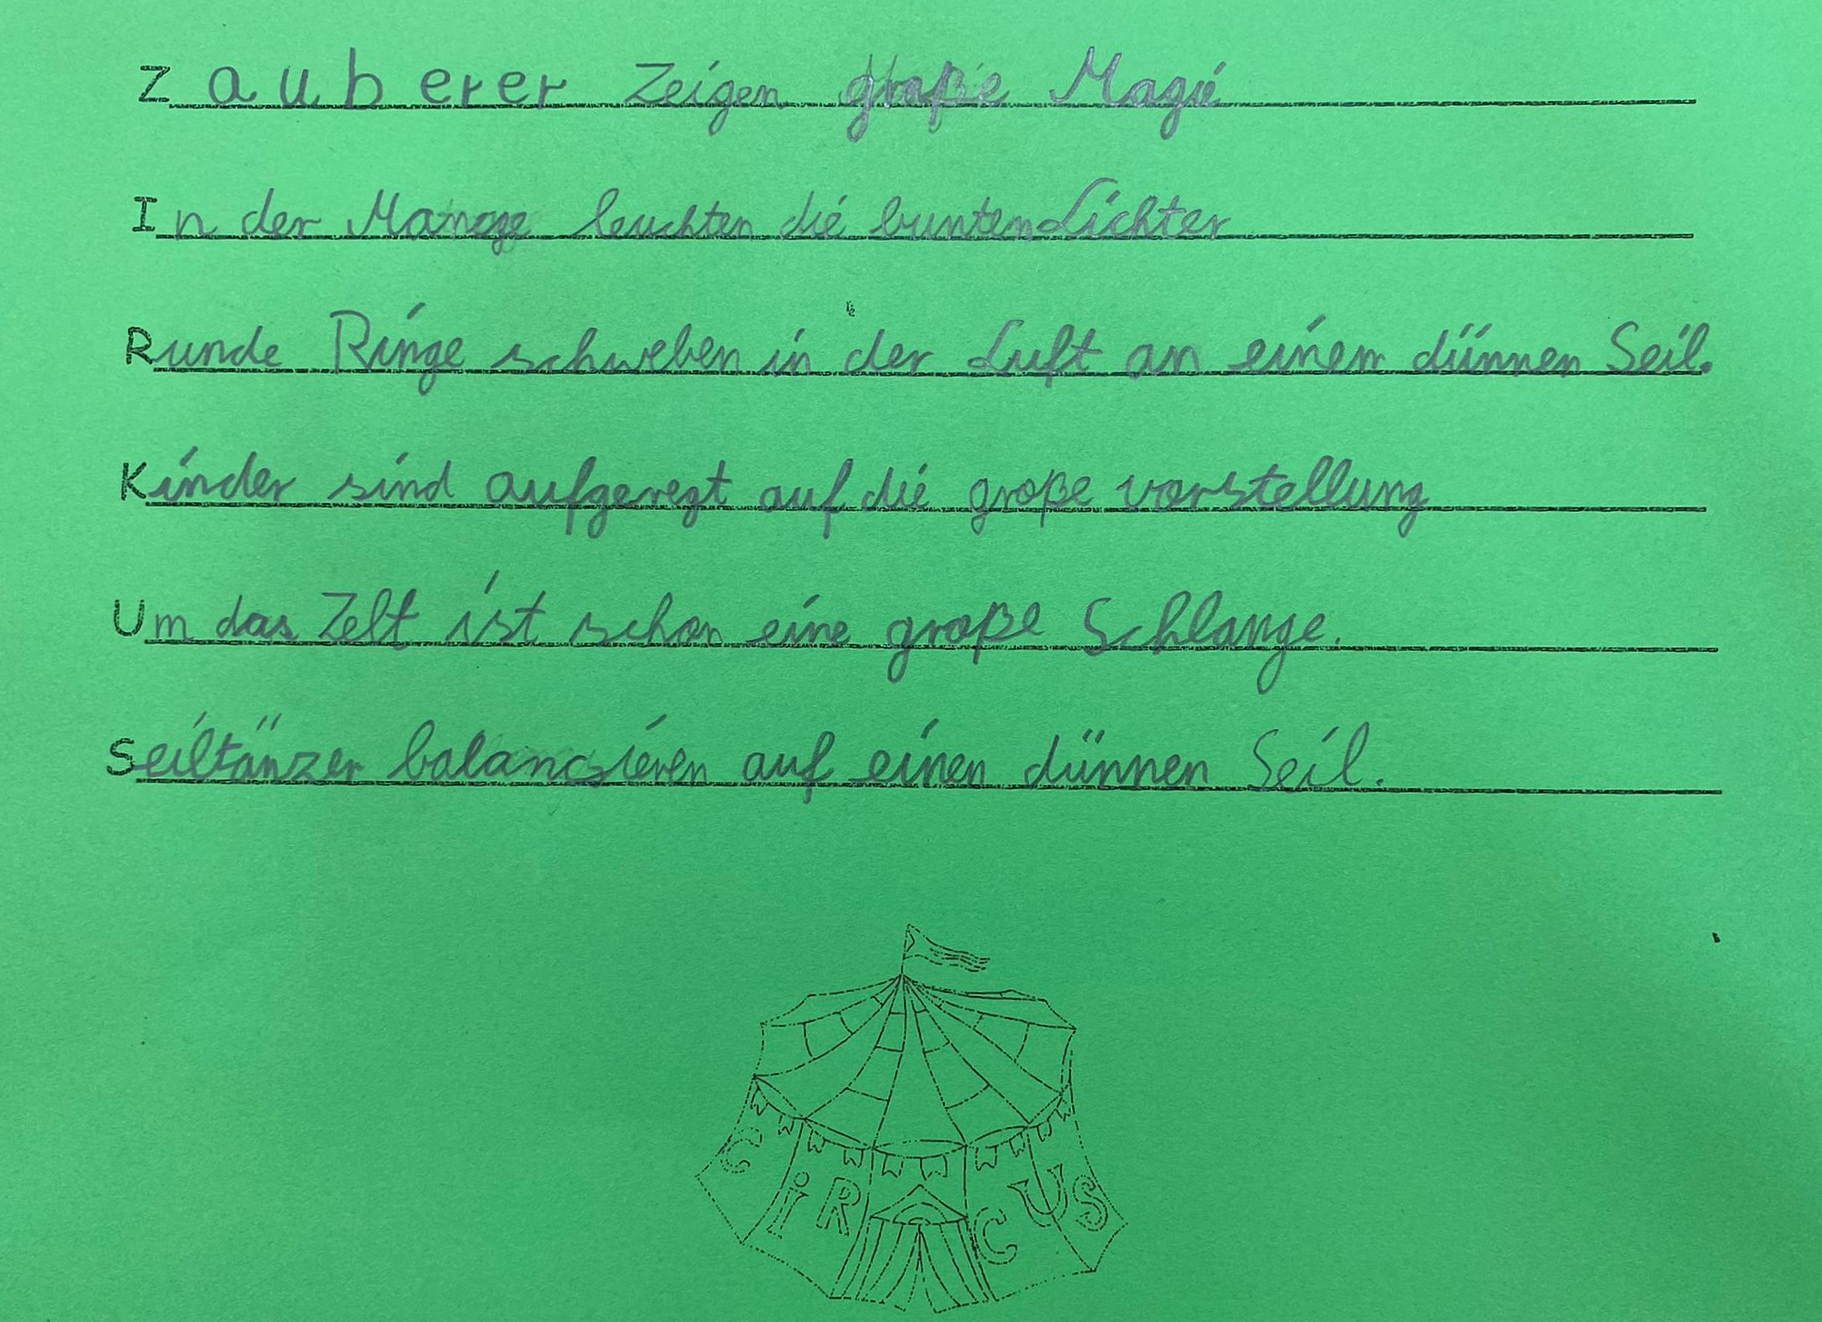 Zauberer Zeigen große Magie
In der Manege leuchten die bunten Lichter
Runde Ringe schweben in der Luft an einem dünnen Seil.
Kinder sind aufgeregt auf die große vorstellung
Um das Zelt ist schon eine große Schlange.
Seiltänzer balancsieren auf einen dünnen Seil.
CiRCUS